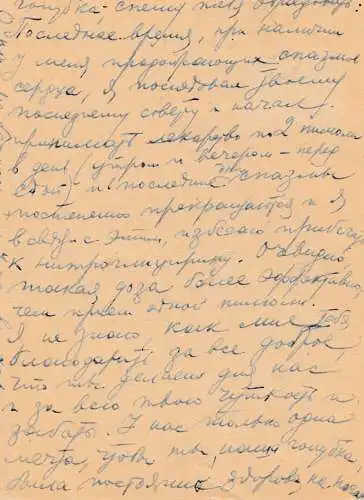 голубка, спешу тебя обрадовать:
Последнее время, при наличии
у меня продолжающихся спазмов
сердца, я последовал твоему
последнему совету и начал
принимать лекарство по 2 пилюли
в день (утром и вечером – перед
едой) и последние дни спазмы
постепенно прекращаются и я
в связи с этим, избегаю прибегать
к нитроглицерину. Очевидно
такая доза более эффективна
чем прием одной пилюли.
Я не знаю как мне тебя
благодарить за все доброе,
что ты делаешь для нас
и за всю твою чуткость и
заботы. У нас только одна
мечта, чтобы ты, наша голубка,
была постоянно здорова